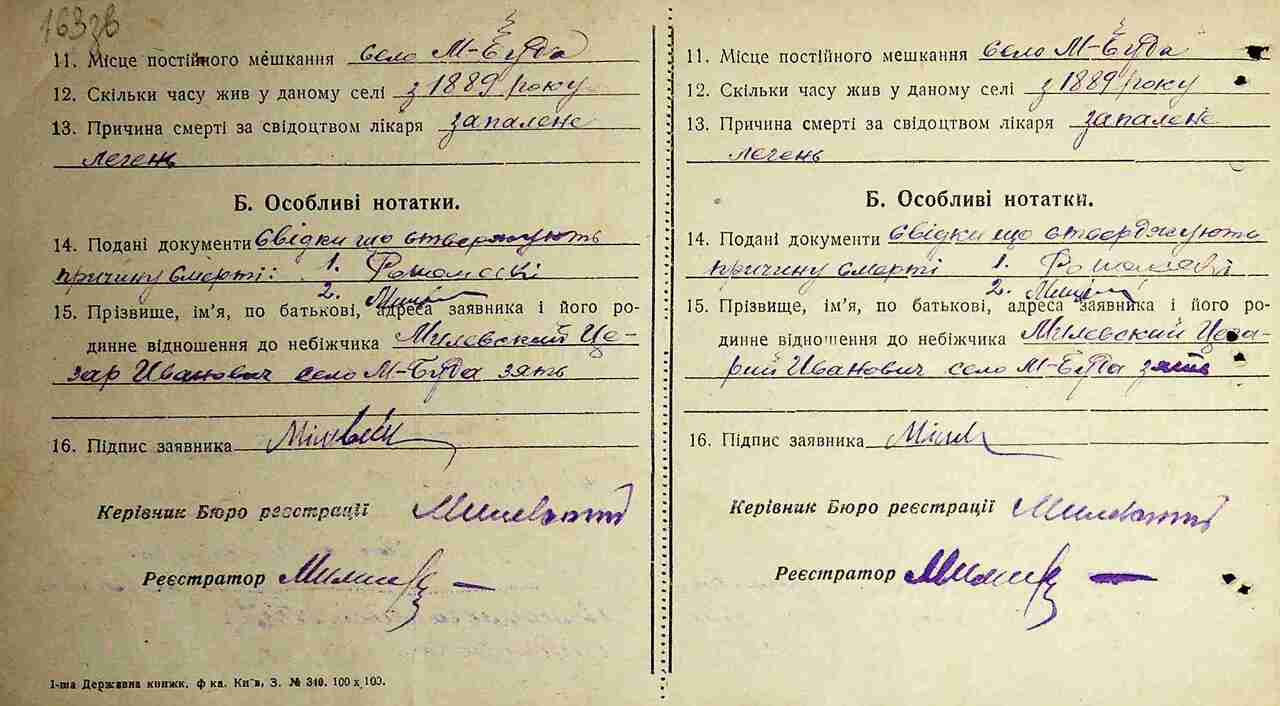 163зв
11. Місце постійного мешкання село М-Буда
12. Скільки часу жив у даному селі з 1889 року
13. Причина смерти за свідоцтвом лікаря запалене
легень
Б. Особливі нотатки.
14. Подані документи Свідки що стверджують
причину смерті: 1.
2.
15. Прізвище, ім'я, по батькові, адреса заявника і його ро-
динне відношення до небіжчика Милевский Це-
зар Иванович село М-Буда зять
16. Підпис заявника
Керівник Бюро реєстрації
Реєстратор
1-ша Державна книжк. ф-ка. Київ, З. № 340. 100 х 100.
11. Місце постійного мешкання село М-Буда
12. Скільки часу жив у даному селі з 1889 року
13. Причина смерти за свідоцтвом лікаря запалене
легень
Б. Особливі нотатки.
14. Подані документи Свідки що стверджують
причину смерті 1.
2.
15. Прізвище, ім'я, по батькові, адреса заявника і його ро-
динне відношення до небіжчика Милевский Цеза-
рий Иванович село М-Буда зять
16. Підпис заявника
Керівник Бюро реєстрації
Реєстратор